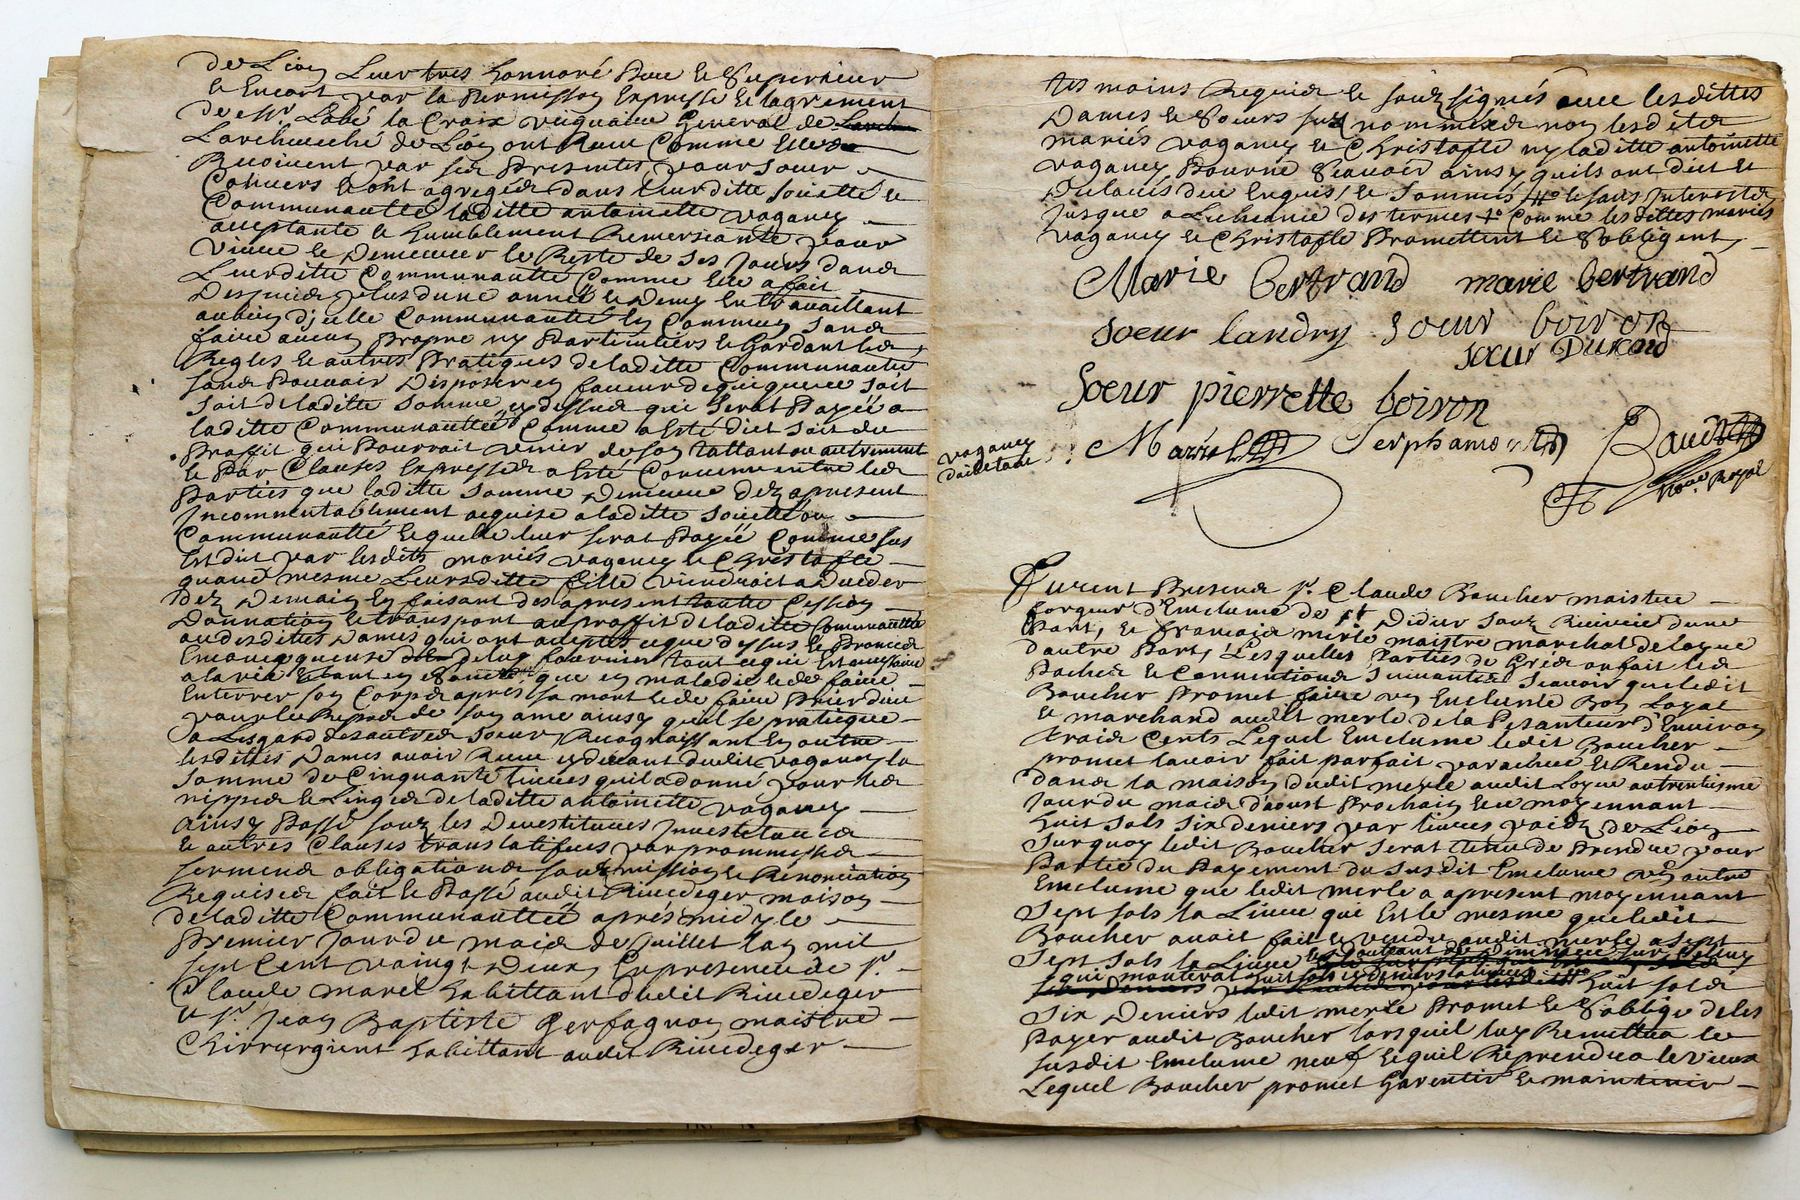 de Lion Leur tres honnoré Pere le Superieur
et Encort par la Permission Expresse et lagrement
de Mr. Labé la Croix viquaire General de Larch
Larcheveché de Lion ont Receu Comme Elles
Recoivent par ses Presentes pour soeur
Conuers et ont agregéé dans Leurditte societté et
Communautté laditte antoinette vaganey
acceptante et humblement Remersiante pour
vivre et Demeurer le Reste de ses jours dans
Leurditte Communautté Comme Elle a fait
Despuis plus dune année et Demy En travaillant
au bien djcelle Communautté En Commun sans
faire aucun Propre ny Particuliers et Gardant les
Regles et autres Pratiques de laditte Communautté
sans Pouvoir Disposer en faueur de qui que ce soit
soit de laditte somme cy dessus qui serat Payéé a
laditte Communauttéé Comme a esté dict soit du
Proffit qui Pourrait venir de son tattant ou autrement
et Par Clauses Expresses a Esté Convenu entre les
Parties que laditte somme Demeure dez apresent
Jncommutablement acquise a laditte societté ou
Communautté Lequelle leur serat Payéé Comme sus
Est dit par lesdits mariés vaganey et Christofle
quand mesme Leursditte fille viendroit a Deceder
Dez Demain En faisant des apresent toutte Cession
Donnation et transport au proffit de laditte Communautté
ausdesdites Dames qui ont accepté ce que dessus et Promis
En ce que de luy fournir tout ce qui Est necessaire
a la vie Estant en Santé que en maladie et de faire
Enterrer son Corps apres sa mort et de faire Prier dieu
pour le Repos de son ame ainsy quil se pratique
a Lesgard des autres soeurs, Recognaissant En outre
lesdittes Dames avoir Receu cy devant dudit vaganey la
somme de Cinquante liures quil a donné pour les
nippes et Linges de laditte antoinette vaganey
ainsy Passé souz les Devestitures Jnvestitures
et autres Clauses translatifues par prommesses
serments obligations souzmission et Renonciation
Requises fait et Passé audit Rivedeger maison
de laditte Communauttéé aprés midy le
Premier jour du mois de juillet lan mil
sept Cent vaingt Deux En presence de Sr.
Claude marel habittant dudit Rivedeger
et Sr. jean Baptiste Gerfagnon maistre
Chirrurgient habittant audit Rivedeger
tes moins Requis et souz signés avec lesdittes
Dames et Soeurs sus nommées non lesdits
mariés vaganey et Christofle ny laditte antoinette
vaganey Pour ne Scavoir ainsy quils ont dict et
declarés dce Enquis, et Sommés et sans Jnterests
jusque a Lecheance des termes Comme lesdittes mariés
vaganey et Christofle Promettent et Sobbligent
Marie bertrand marie bertrand
soeur landry soeur boiron
soeur Durand
Soeur pierrette boiron
vaganey
Marel Gerphanion
Royal
Furent Presens Sr. Claude Boucher maistre
forgeur d'Enclume de St Didier souz Riverie dune
Part, et francois merle maistre marchal de Loyre
dautre Part, Lesquelles Parties de Gres ont fait les
Paches et Conventions suivantes scavoir que ledit
Boucher Promet faire un Enclume Bon Loyal
et marchand audit merle de la Pesanteur d'Environ
trois Cents Lequel Enclume ledit Boucher
promet lavoir fait parfait parachevé et Rendu
dans la maison dudit merle audit Loyre au trentiesme
jour du mois d'aoust Prochain et ce moyennant
huit sols six deniers par livres poidz de Lion
surquoy ledit Boucher serat tenu de Prendre pour
Partie du Payement du susdit Enclume un autre
Enclume que ledit merle a apresent moyennant
sept sols la Livre qui Est le mesme que ledit
Boucher avoit fait et vendu audit merle a sept
sept sols la Livre
huit sols
six Deniers ledit merle Promet et Sobblige de les
Payer audit Boucher lorsquil luy Remettra le
susdit Enclume neuf et quil Reprendra le vieux
Lequel Boucher promet Garentir et maintenir